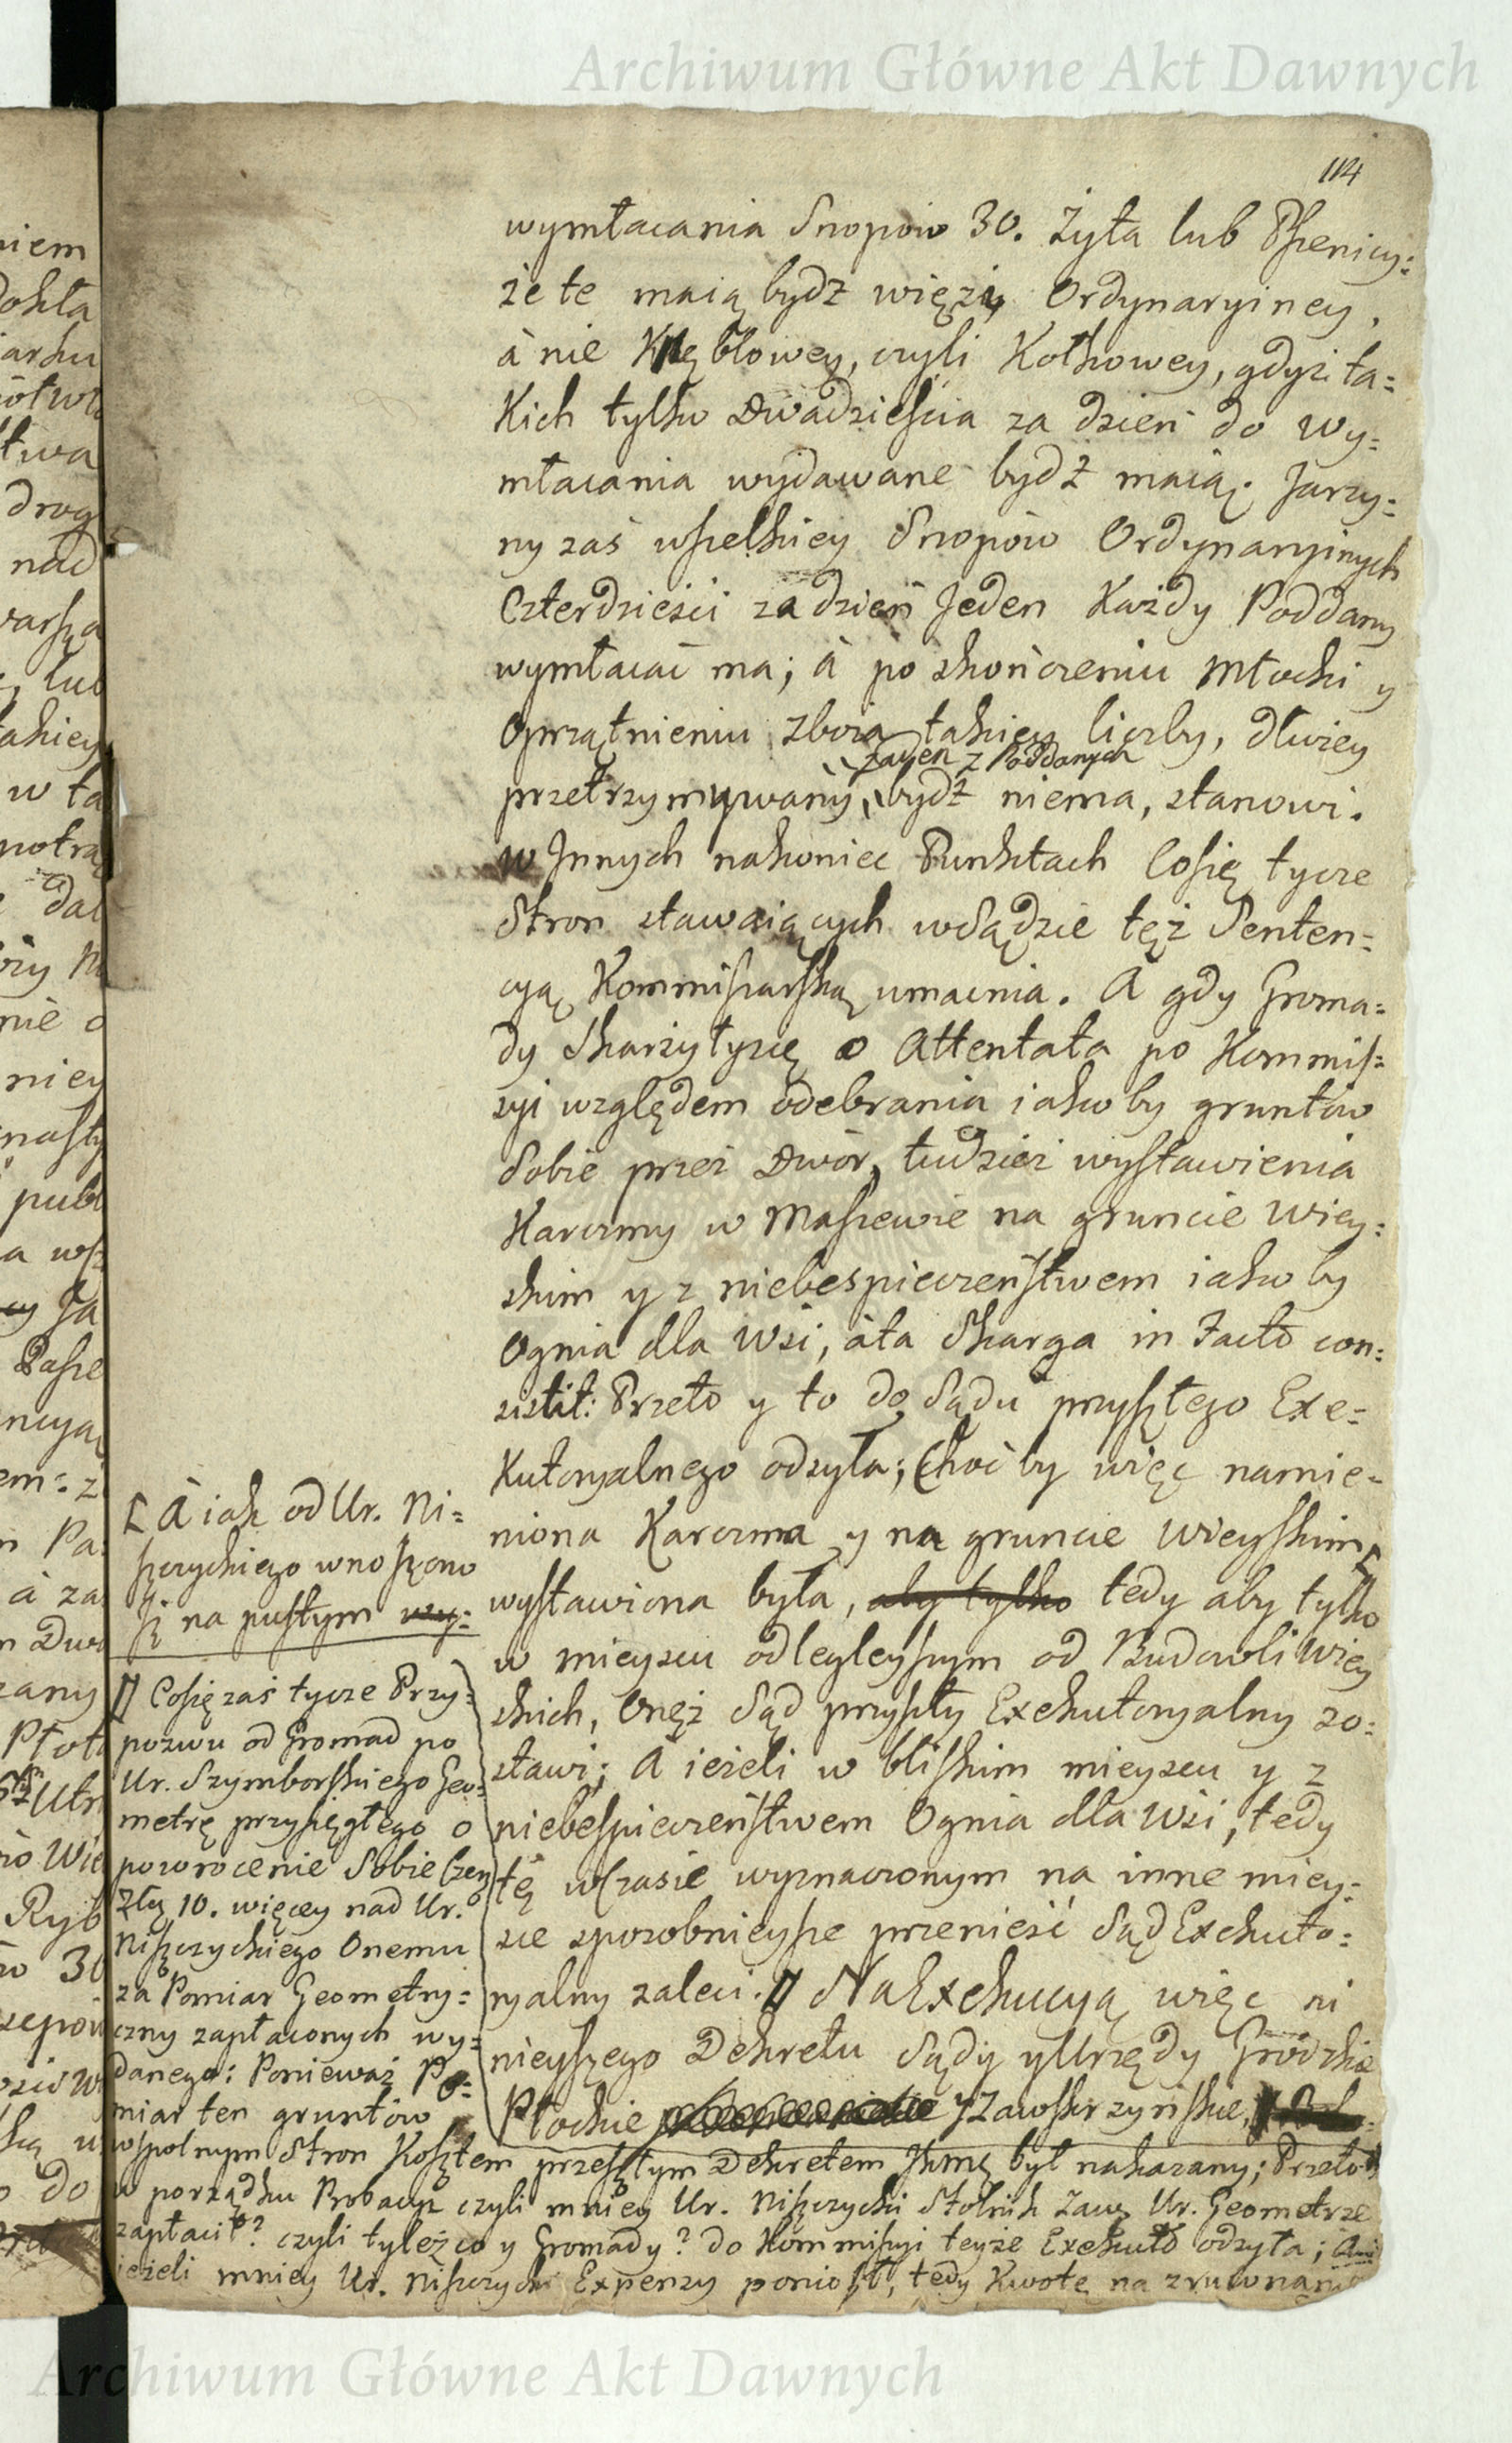 Archiwum Główne Akt Dawnych
114
wymłacania Snopow 30. Żyta lub Pszenicy:
że te maią bydź więzi Ordynaryiney,
à nie Kłębłowey, czyli Kołkowey, gdyż ta=
kich tylko Dwadzieścia za dzień do wy=
młacania wydawane bydź maią. Jarzy=
ny zaś wszelkiey Snopów Ordynaryinych
Czterdzieści za dzień Jeden Każdy Poddany
wymłacać ma; à po skończeniu Młocki y
Oprzątnieniu zboża takiey liczby, dłużey
żaden z Poddanych
przetrzymywany, bydź niema, stanowi.
w Jnnych nakoniec Punktach Cosię tycze
Stron stawaiących wSądzie też Senten=
cyą Kommissarską umacnia. A gdy Groma=
dy Skarżyłysię o Attentata po Kommis=
syi względem odebrania iakoby gruntów
Sobie przez Dwór, tudzież wystawienia
Karczmy w Maszewie na gruncie Wiey=
skim y z niebespieczeństwem iakoby
Ognia dla Wsi, àta Skarga in Facto con=
sistit: Przeto y to do Sądu przyszłego Exe=
kutoryalnego odsyła; Choćby więc namie=
niona Karczma y na gruncie Wieyskim
wystawiona była, aby tylko tedy aby tylko
w mieyscu odlegleyszym od Budowli Wiey
skich, Onęż Sąd przyszły Exekutoryalny zo=
stawi; A ieżeli w bliskim mieyscu y z
niebespieczeństwem Ognia dla Wsi, tedy
tę wCzasie wyznaczonym na inne miey=
sce sposobnieysze przenieść Sąd Exekuto=
ryalny zaleci. Na Exekucyą więc ni
nieyszego Dekretu Sądy yUrzędy Grodzkie
Płockie y Zawskrzyńskie,
[ À iak od Ur. Ni=
szczyckiego wnoszono
na pustym wy=
Cosię zaś tycze Przy=
pozwu od Gromad po
Ur. Szymborskiego Geo=
metrę przysięgłego o
powrocenie Sobie Czer
Złch 10. więcey nad Ur.
Niszczyckiego Onemu
za Pomiar Geometry=
czny zapłaconych wy=
danego: Ponieważ Po=
miar ten gruntów
wspolnym Stron Kosztem przeszłym Dekretem był nakazany; Przeto
w porządku Probacyi czyli mniey Ur. Niszczycki Stolnik Zaws. Ur. Geometrze
zapłacił? czyli tyleż co y Gromady? do Kommissyi teyże Exekuto odsyła;
ieżeli mniey Ur. Niszczycki Expensy poniósł, tedy Kwotę na zrównanie
Archiwum Główne Akt Dawnych